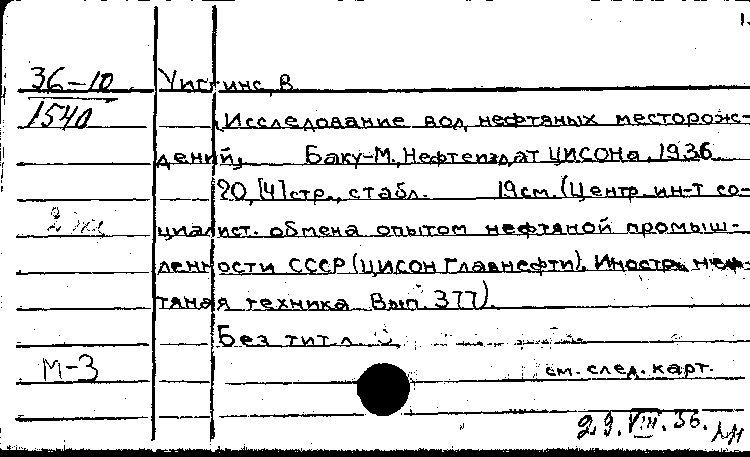 36-10 Уиггинс, В
1540 Исследование вод нефтяных месторож-
дений, Баку-М., Нефтеиздат ЦИСОНа, 1936
20, [4] стр., с табл. 19 см. (Центр. ин-т со-
2 циалист. обмена опытом нефтяной промыш-
ленности СССР (ЦИСОН Главнефти). Иностр. неф-
тяная техника Вып. 377).
Без тит. л.
М-3 см. след. карт.
29.VIII.36.